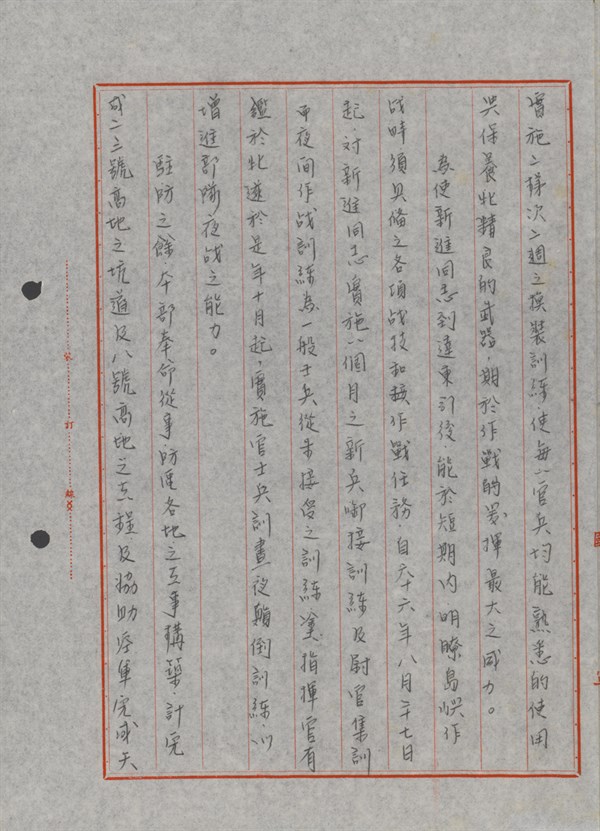 實施二樣次二週之換裝訓練,使每一官兵均能熟悉的使用
與保養此精良的武器,期於作戰時發揮最大之威力。
為使新進同志到達東引後,能於短期內明瞭島嶼作
战時須具備之各項战技和接作戰任務,自六十六年八月二十七日
起,对新進同志實施一個月之新兵啣接訓練及尉官集訓
而夜間作战訓練為一般士兵從未接受之訓練,指揮官有
鑑於此遂於是年十月起,實施官士兵訓晝夜顛倒訓練,以
增進部隊夜战之能力。
駐防之餘本部奉命從事防區各地之工事構築,計完
成一二三號高地之坑道及八號高地之工程及協助空軍完成天
裝訂線